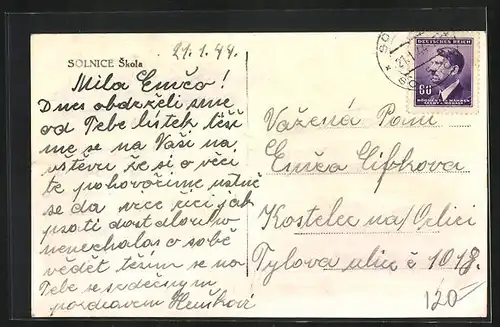 21.1.44.
SOLNICE Škola
Milá Emčo!
Dnes obdrželi sme
od Tebe lístek těší
me se na Vaši ná
vštěvu že si o věci
té pohovoříme ustně
se dá více říci jak
psáti dost dlouho
nenechalas o sobě
vědět těším se na
Tebe se srdečným
pozdravem
DEUTSCHES REICH
60
BÖHMEN UND MÄHREN
ČECHY A MORAVA
Vážená Paní
Emča Cifkova
Kostelec na/Orlicí
Tylova ulice č 1018.
120-